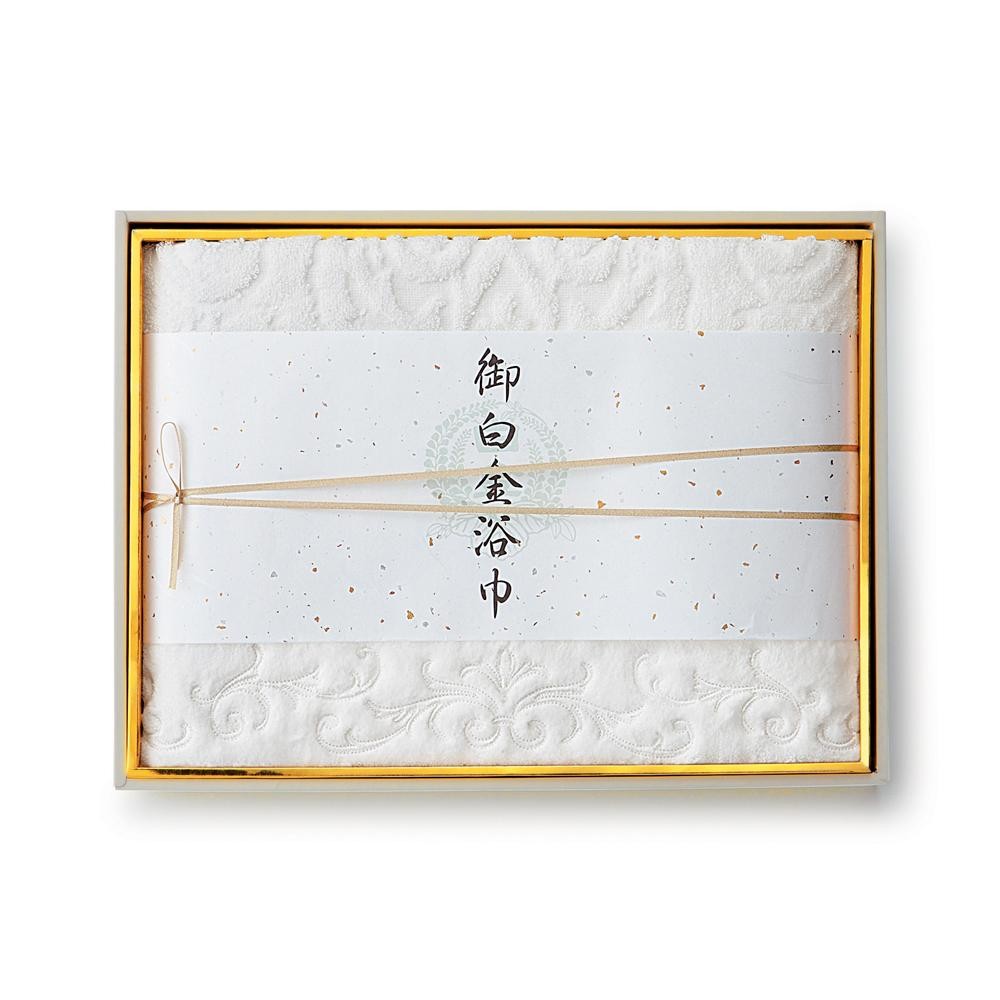 御白金浴巾